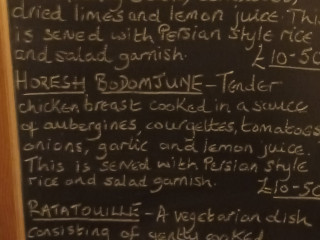 dried limes and lemon juice. This
is served with Persian style rice
and salad garnish. £10-50
HORESH BODOMJUNE - Tender
chicken breast cooked in a sauce
of aubergines, courgettes, tomatoes
onions, garlic and lemon juice.
This is served with Persian style
rice and salad garnish. £10-50
RATATOUILLE - A vegetarian dish
consisting of gently cooked